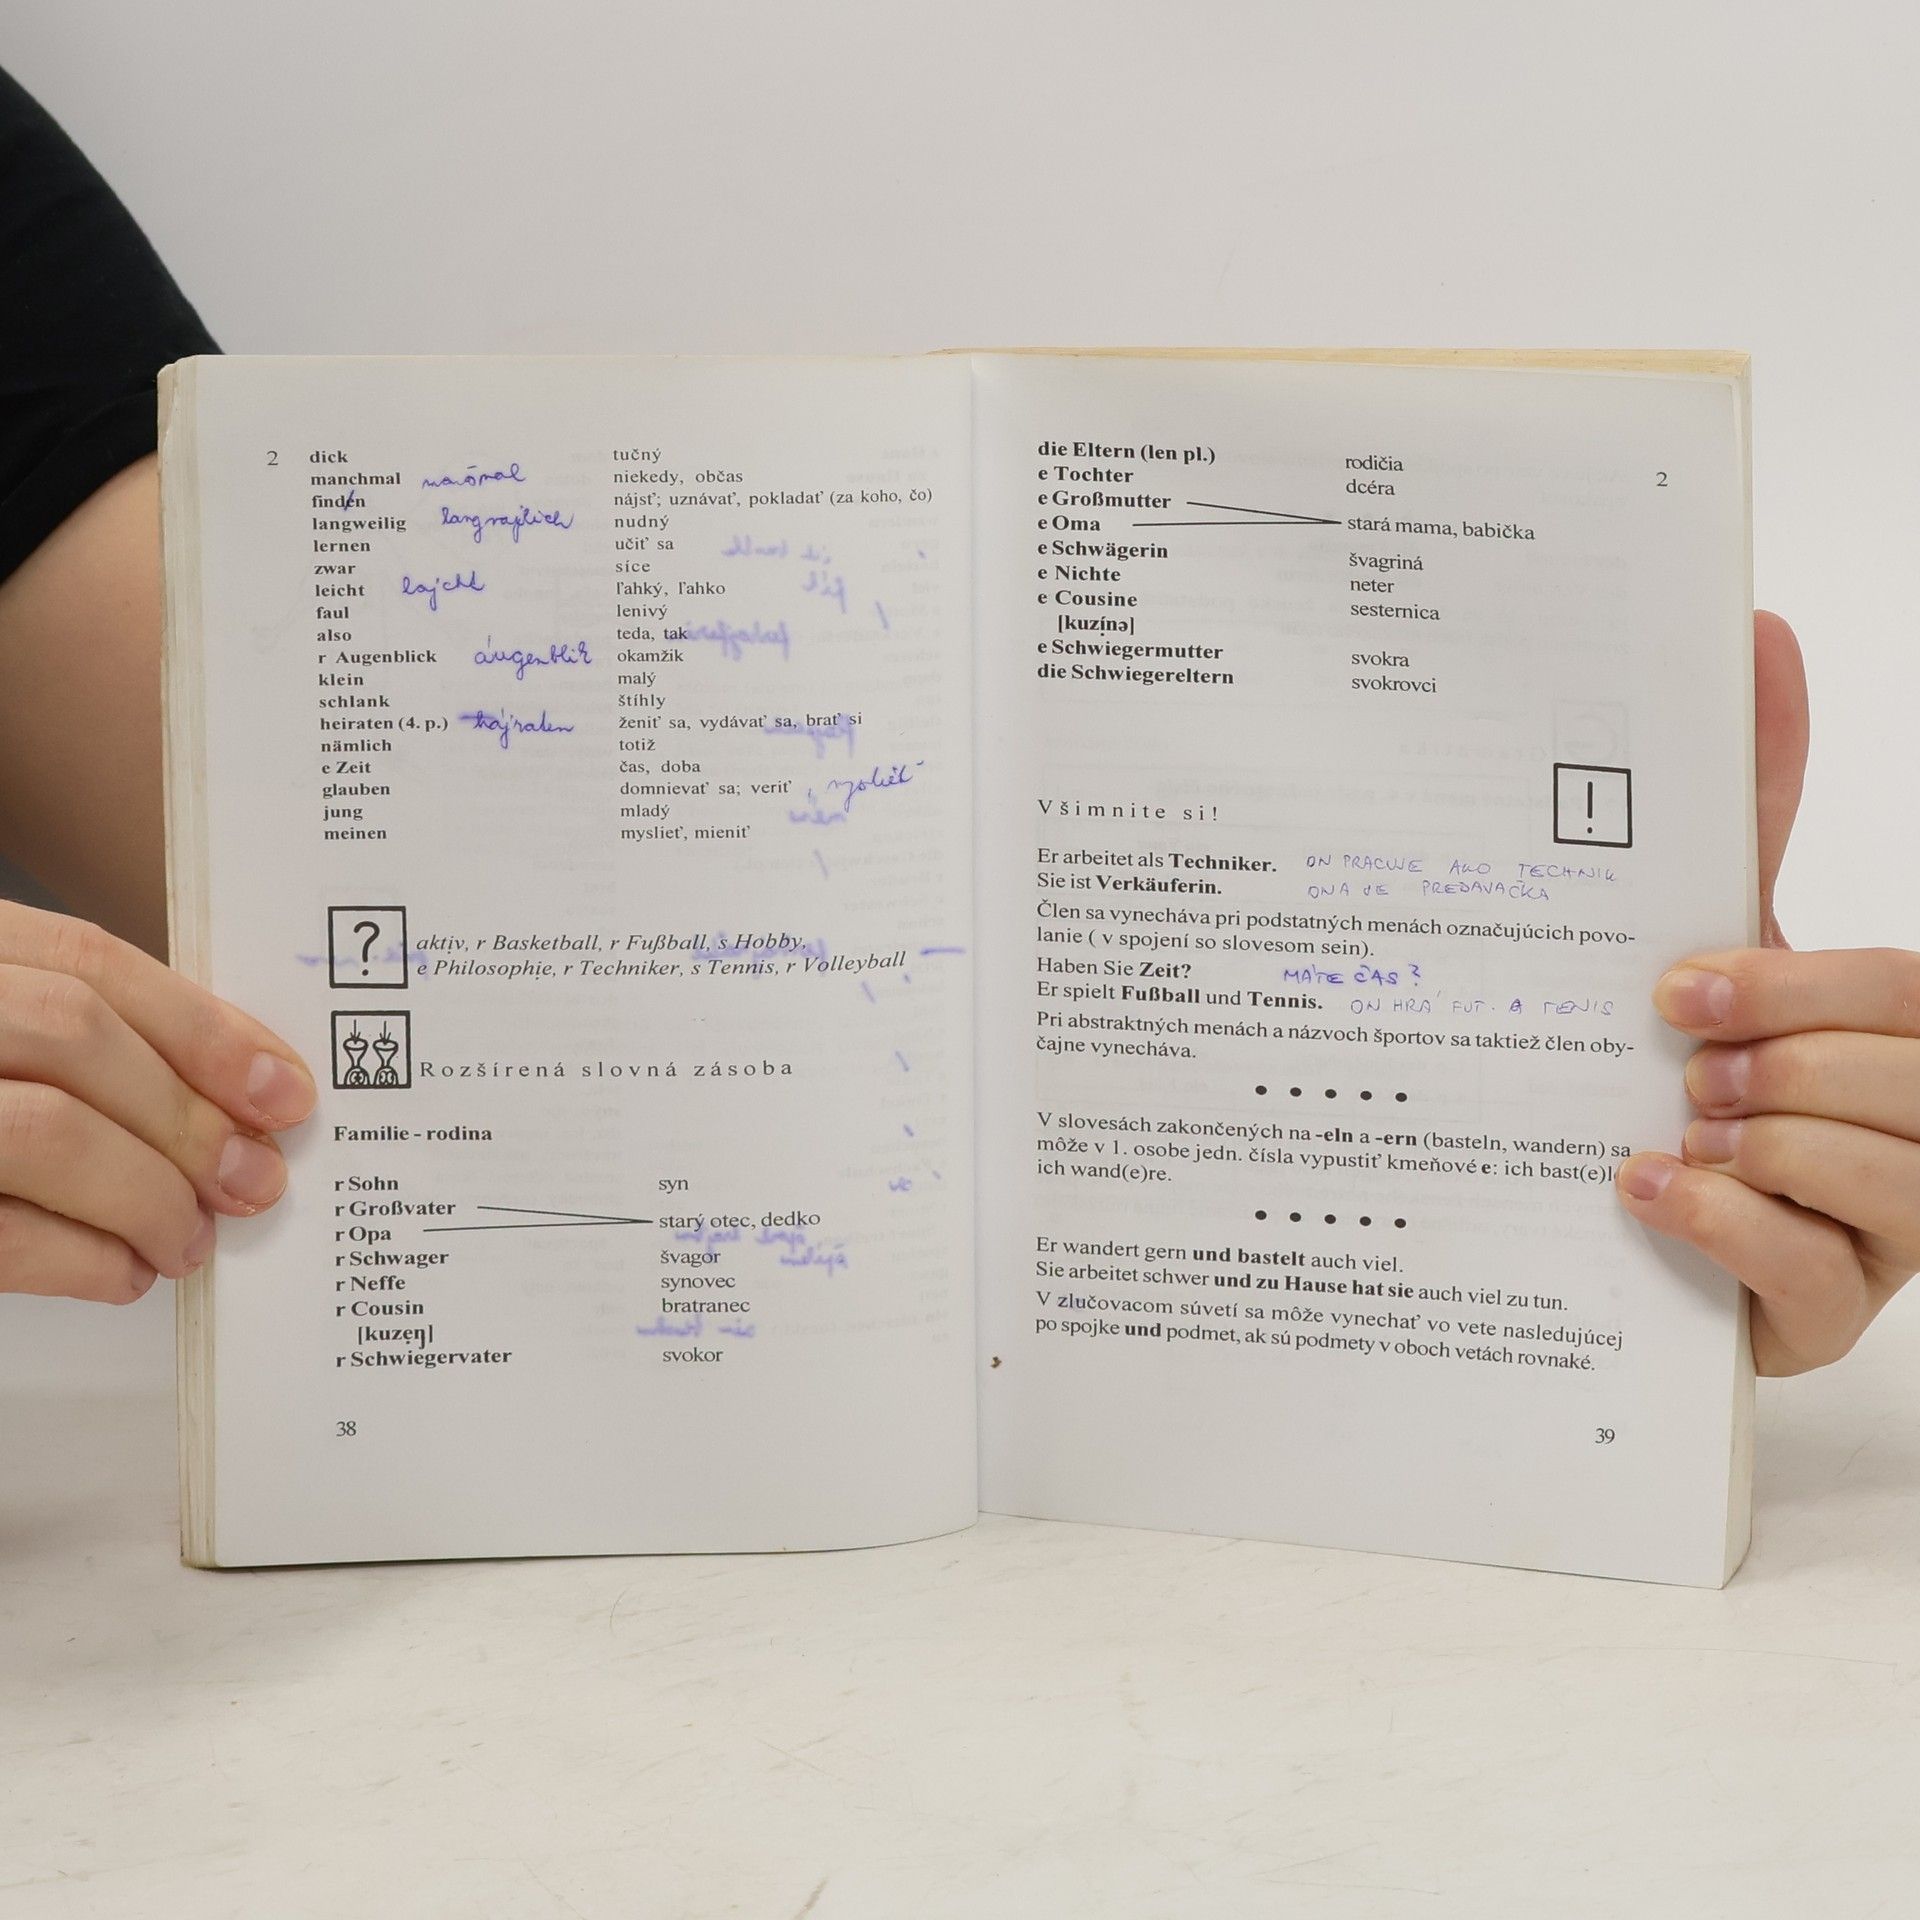 2 dick tučný
manchmal niekedy, občas
finden nájsť; uznávať, pokladať (za koho, čo)
langweilig langvajlich nudný
lernen učiť sa
zwar síce
leicht lajcht ľahký, ľahko
faul lenivý
also teda, tak
r Augenblick áugenblik okamžik
klein malý
schlank štíhly
heiraten (4. p.) hájraten ženiť sa, vydávať sa, brať si
nämlich totiž
e Zeit čas, doba
glauben domnievať sa; veriť , myslieť
jung mladý
meinen myslieť, mieniť
?
aktiv, r Basketball, r Fußball, s Hobby,
e Philosophie, r Techniker, s Tennis, r Volleyball
Rozšírená slovná zásoba
Familie - rodina
r Sohn syn
r Großvater
starý otec, dedko
r Opa
r Schwager švagor
r Neffe synovec
r Cousin bratranec
[kuzeŋ]
r Schwiegervater svokor
38
die Eltern (len pl.) rodičia
2
e Tochter dcéra
e Großmutter
e Oma stará mama, babička
e Schwägerin švagriná
e Nichte neter
e Cousine sesternica
[kuzínə]
e Schwiegermutter svokra
die Schwiegereltern svokrovci
!
Všimnite si!
Er arbeitet als Techniker. ON PRACUJE AKO TECHNIK
Sie ist Verkäuferin. ONA JE PREDAVAČKA
Člen sa vynecháva pri podstatných menách označujúcich povo-
lanie ( v spojení so slovesom sein).
Haben Sie Zeit? MÁTE ČAS?
Er spielt Fußball und Tennis. ON HRÁ FUT. A TENIS
Pri abstraktných menách a názvoch športov sa taktiež člen oby-
čajne vynecháva.
• • • • •
V slovesách zakončených na -eln a -ern (basteln, wandern) sa
môže v 1. osobe jedn. čísla vypustiť kmeňové e: ich bast(e)l
ich wand(e)re.
• • • • •
Er wandert gern und bastelt auch viel.
Sie arbeitet schwer und zu Hause hat sie auch viel zu tun.
V zlučovacom súvetí sa môže vynechať vo vete nasledujúcej
po spojke und podmet, ak sú podmety v oboch vetách rovnaké.
39